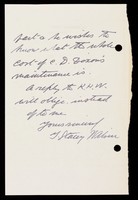 part &amp; he wishes to
know what the whole
cost of C. D. Dixon's
maintenance is.
A reply to K.H.W.
will oblige instead
of to me
Yours sincerely
J Stacey Wilson